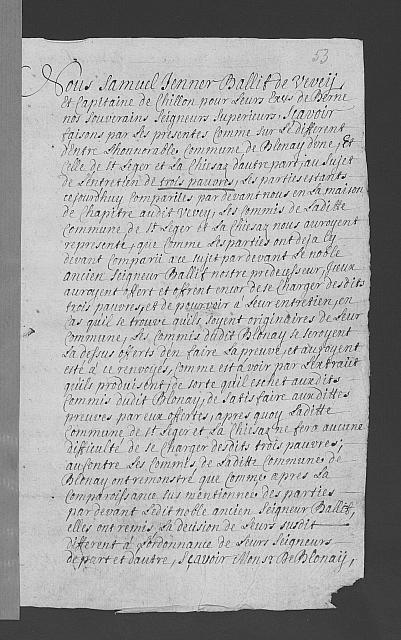 53
Nous Samuel Jenner Ballif de Vevey
Et Capitaine de Chillon pour Leurs Exces de Berne
nos souverains Seigneurs Superieurs; Sçavoir
faisons par Les presentes Comme sur Le different
d'entre L'honnorable Commune de Blonay d'une, Et
Celle de St Leger et La Chiesaz d'autre part, au Sujet
de L'entretien de trois pauvres, Les parties estants
cejourdhuy Comparües par devant nous en La maison
de Chapitre audit Vevey, Les Commis de Laditte
Commune de St Leger et La Chiesaz nous auroyent
representé, que Comme Les parties ont desja Cy
devant Comparü au sujet par devant Le noble
ancien Seigneur Ballif nostre predecesseur, Jceux
auroyent offert et offrent encor de se Charger desdits
trois pauvres, et de pourvoir à Leur entretien, en
Cas quil se trouve quils soyent originaires de Leur
Commune, Les Commis dudit Blonay se seroyent
La dessus offerts d'en faire La preuve, et auroyent
esté à ce renvoyés, Comme est à voir par L'extrait
quils produisent, de sorte quil eschet auxdits
Commis dudit Blonay, de satisfaire auxdittes
preuves par eux offertes, apres quoy Laditte
Commune de St Leger et La Chiesaz ne fera aucune
difficulté de se Charger desdits trois pauvres;
au Contre Les Commis de Laditte Commune de
Blonay ont remonstré que Comme apres La
Comparoissance sus mentionnée des parties
par devant Ledit noble ancien Seigneur Ballif,
elles ont remis La decision de Leurs susdit
different à L'ordonnance de Leurs Seigneurs
de part et d'autre, Sçavoir Monsr De Blonay,